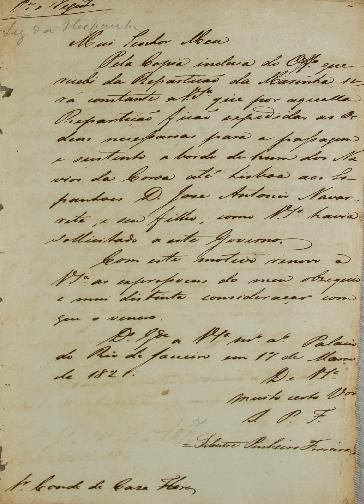 Meu Senhor Meu
Pela Copia inclusa do Offo. que
recebi da Repartição da Marinha se
rá constante a V.Sa. que por aquella
Repartição ficão expedidas as Or
dens necessarias para a passagem
e sustento a bordo de hum dos Na
vios da Coroa até Lisboa aos Es
panhoes D. Jose Antonio Navar
rete, e seu filho, como V.Sa. havia
sollicitado a este Governo.
Com este motivo renovo a
V.Sa. as expressoens do meu obsequio
e mui distinta consideração com
que o venero.
Ds. Gde. a V.Sa. ms. as. Palacio
do Rio de Janeiro em 17 de Março
de 1821.
De V.Sa.
muito certo Vor
S. P. F.
Silvestre Pinheiro Ferreira
Sr. Conde de Caza Flores